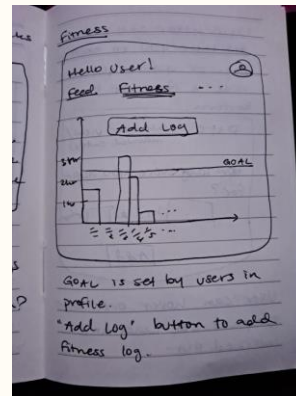 Fitness
Hello User!
Feed Fitness ...
Add Log
GOAL
...
GOAL is set by users in
profile.
"Add Log" button to add
fitness log.